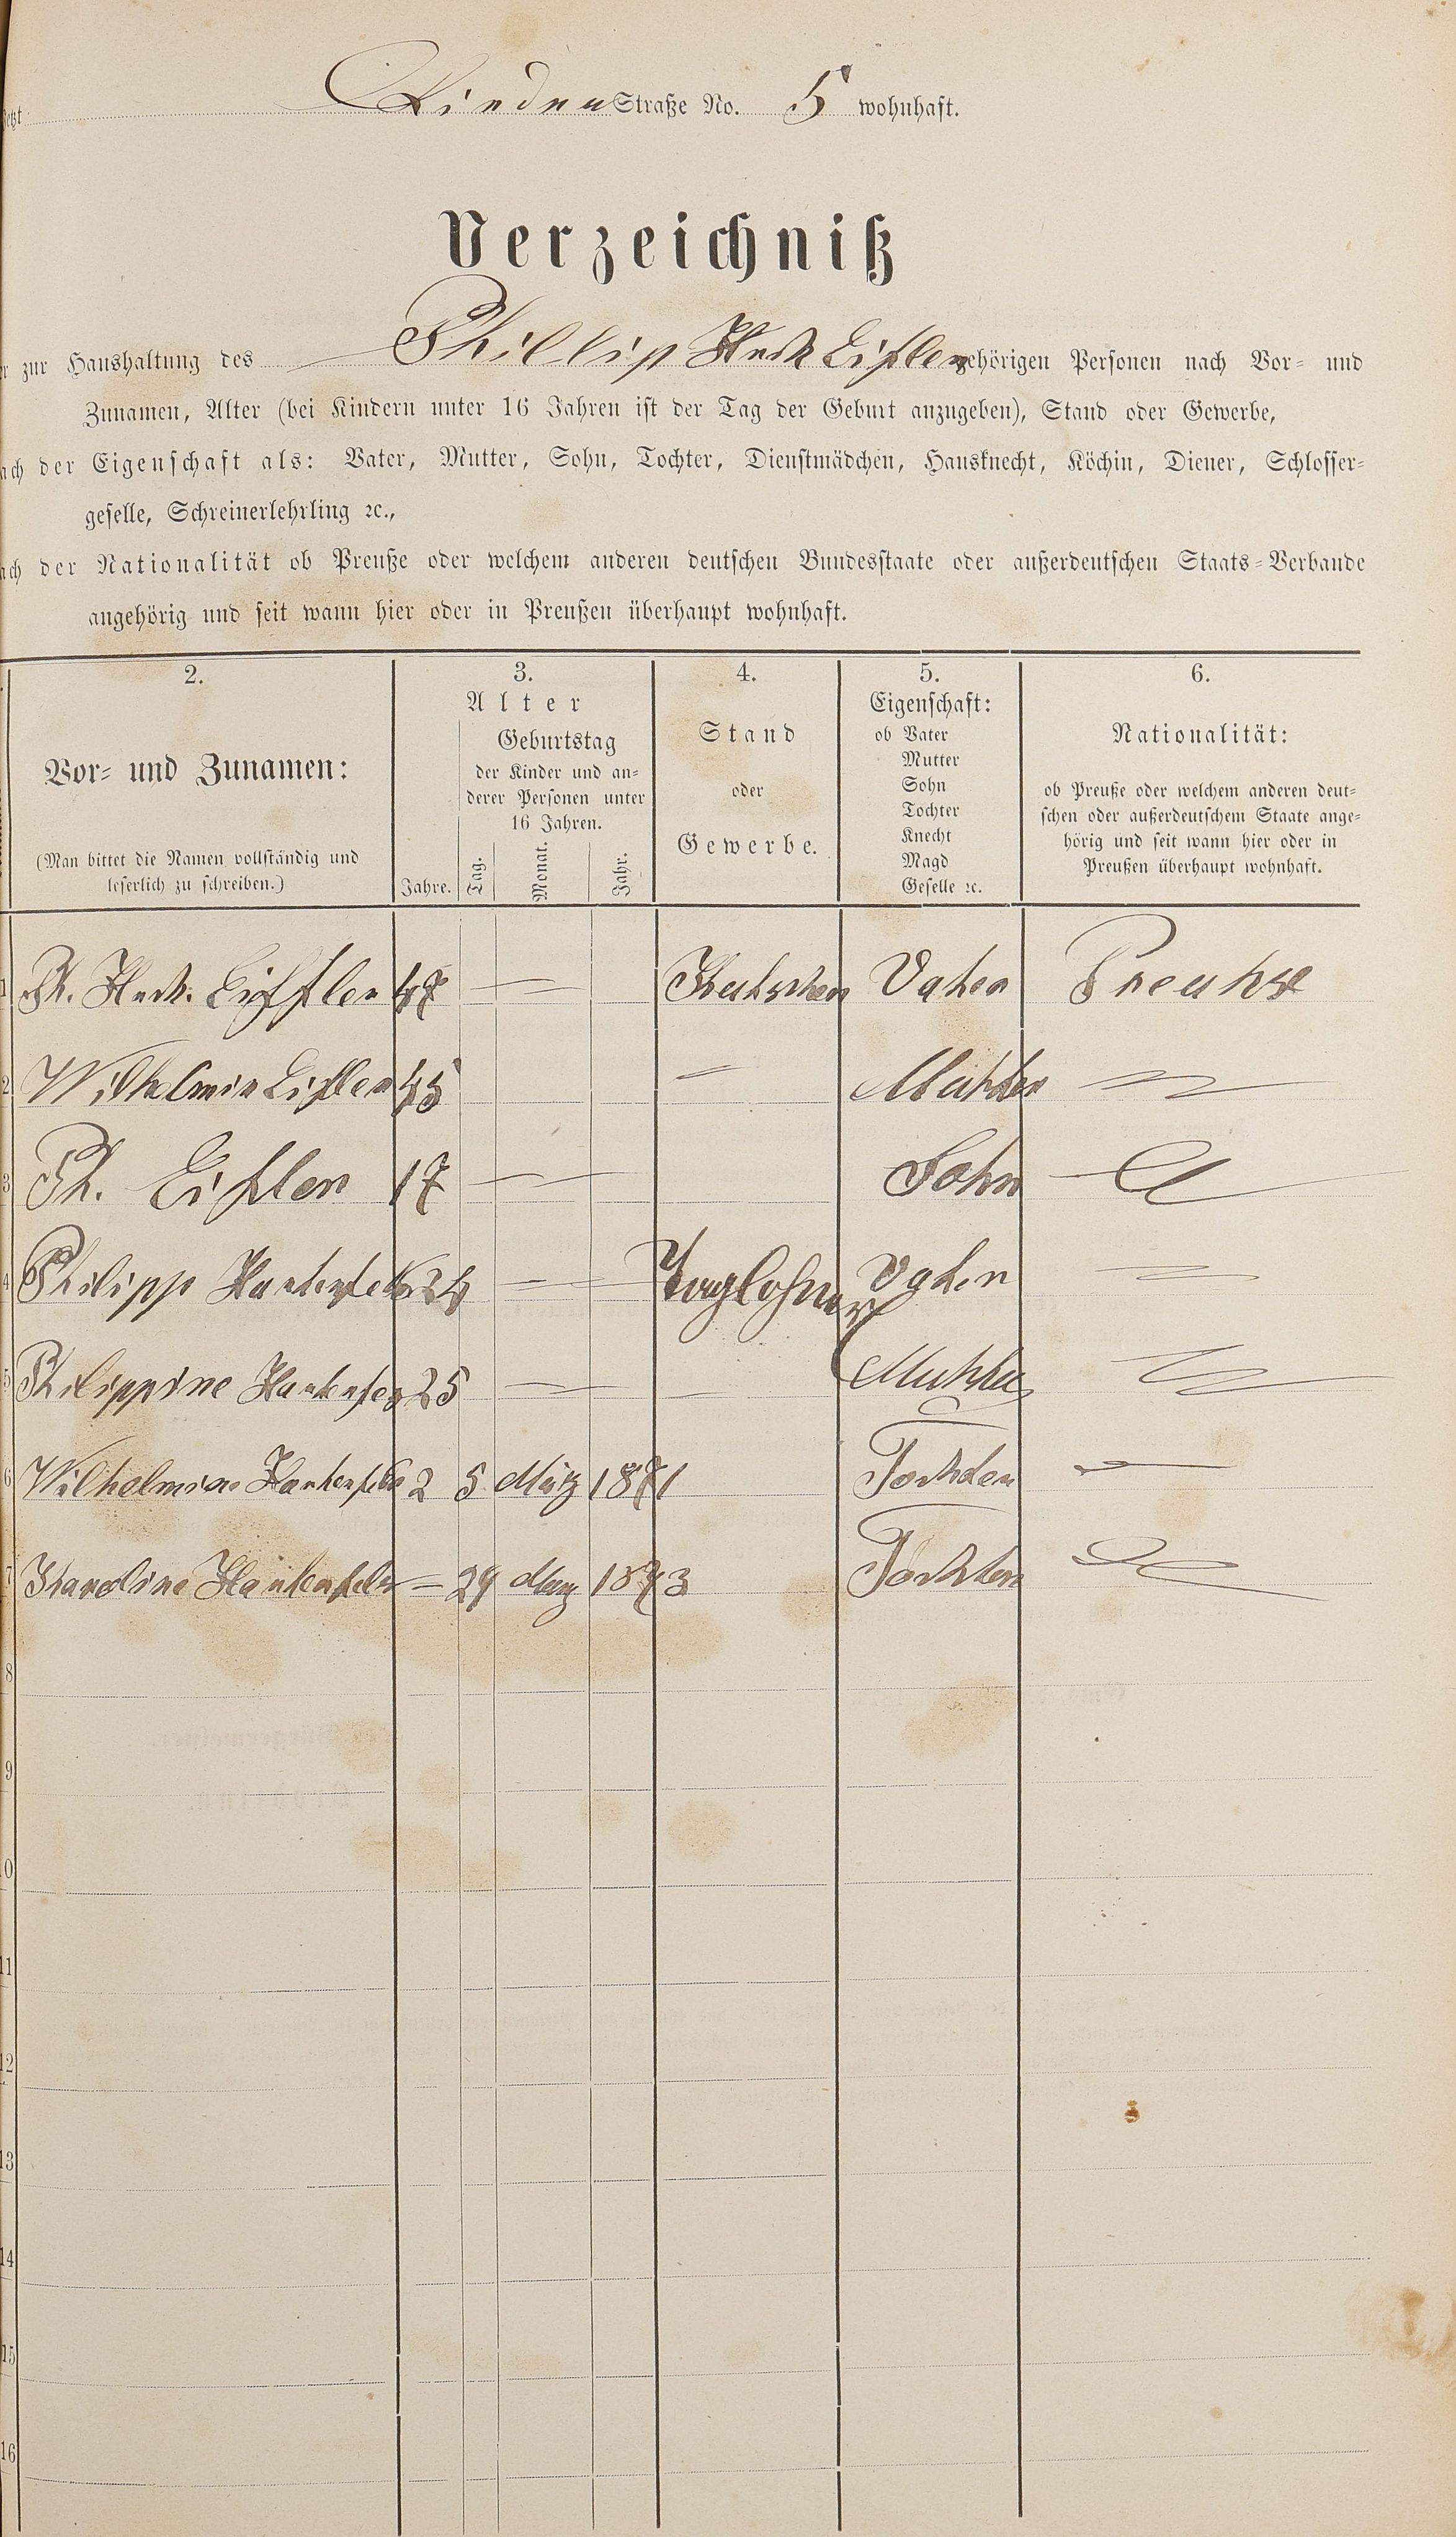 Straße No. 5 wohnhaft.
Verzeichniß
zur Haushaltung des Phillip Eißler gehörigen Personen nach Vor- und
Zunamen, Alter (bei Kindern unter 16 Jahren ist der Tag der Geburt anzugeben), Stand oder Gewerbe,
der Eigenschaft als: Vater, Mutter, Sohn, Tochter, Dienstmädchen, Hausknecht, Köchin, Diener, Schlosser-
geselle, Schreinerlehrling ꝛc.,
der Nationalität ob Preuße oder welchem anderen deutschen Bundesstaate oder außerdeutschen Staats-Verbande
angehörig und seit wann hier oder in Preußen überhaupt wohnhaft.
2. 3. 4. 5. 6.
Vor- und Zunamen:
(Man bittet die Namen vollständig und
leserlich zu schreiben.)
Alter
Geburtstag
der Kinder und an-
derer Personen unter
16 Jahren.
Jahre. Tag. Monat. Jahr.
Stand
oder
Gewerbe.
Eigenschaft:
ob Vater
Mutter
Sohn
Tochter
Knecht
Magd
Geselle ꝛc.
Nationalität:
ob Preuße oder welchem anderen deut-
schen oder außerdeutschem Staate ange-
hörig und seit wann hier oder in
Preußen überhaupt wohnhaft.
1 Ph. 47 — Kutscher Vater Preuhse
2 Wilhelmin Eißler 45 — Mutter
3 Ph. Eißler 17 — Sohn
4 Philipp 24 — Taglöhner Vater
5 Philippine 25 — — Mutter
6 Wilhelmine 2 5 März 1871 Tochter
7 Karoline — 29 1873 Tochter
8
9
10
11
12
13
14
15
16